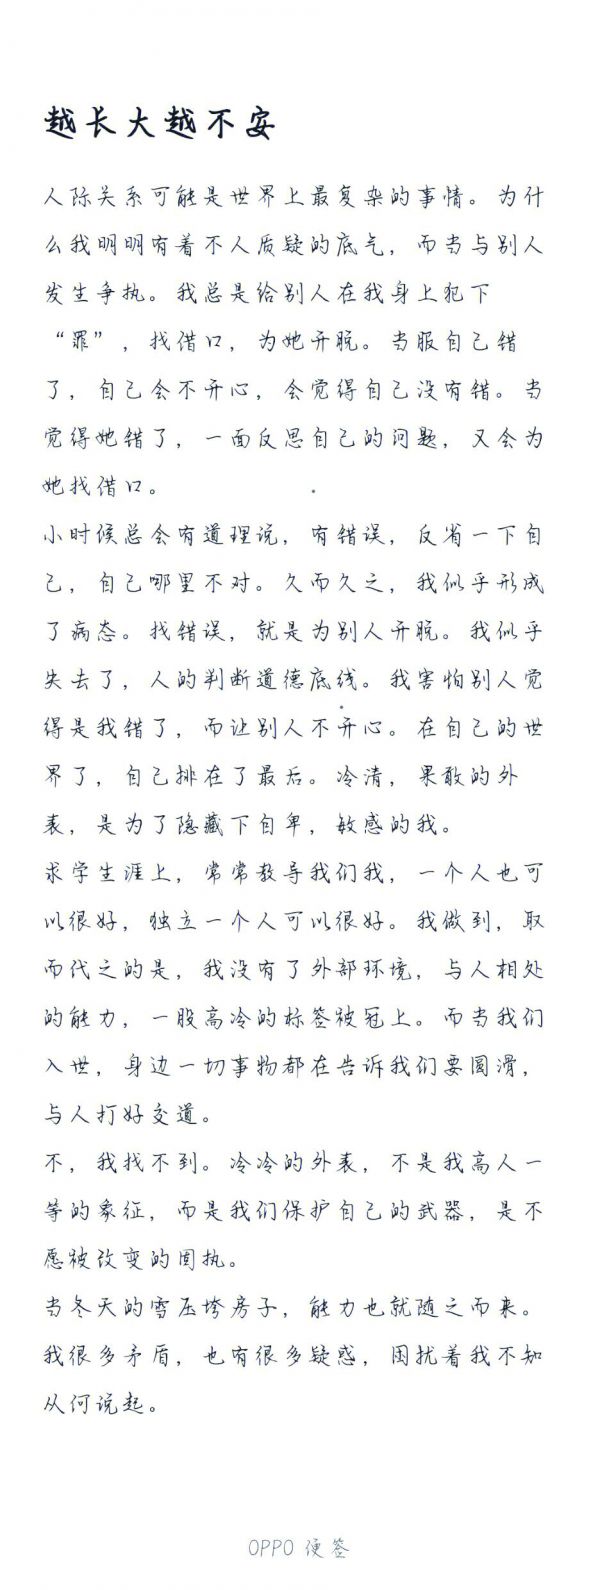 越长大越不安
人际关系可能是世界上最复杂的事情。为什
么我明明有着不人质疑的底气，而当与别人
发生争执。我总是给别人在我身上犯下
“罪”，找借口，为她开脱。当服自己错
了，自己会不开心，会觉得自己没有错。当
觉得她错了，一面反思自己的问题，又会为
她找借口。
小时候总会有道理说，有错误，反省一下自
己，自己哪里不对。久而久之，我似乎形成
了病态。找错误，就是为别人开脱。我似乎
失去了，人的判断道德底线。我害怕别人觉
得是我错了，而让别人不开心。在自己的世
界了，自己排在了最后。冷清，果敢的外
表，是为了隐藏下自卑，敏感的我。
求学生涯上，常常教导我们我，一个人也可
以很好，独立一个人可以很好。我做到，取
而代之的是，我没有了外部环境，与人相处
的能力，一股高冷的标签被冠上。而当我们
入世，身边一切事物都在告诉我们要圆滑，
与人打好交道。
不，我找不到。冷冷的外表，不是我高人一
等的象征，而是我们保护自己的武器，是不
愿被改变的固执。
当冬天的雪压垮房子，能力也就随之而来。
我很多矛盾，也有很多疑惑，困扰着我不知
从何说起。
OPPO 便签